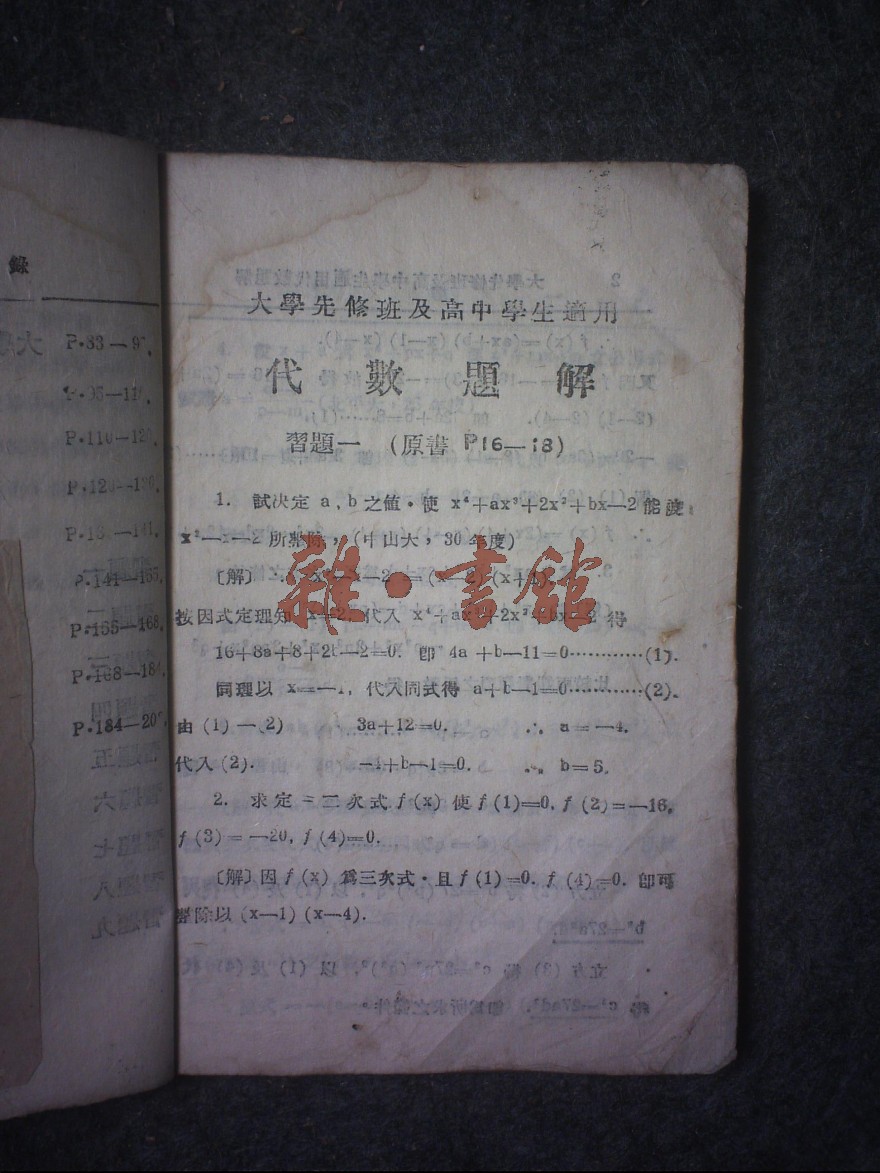 錄
P.83—9
P.110—12
P.144—165,
P.165—168,
P.168—184,
P.184—20
大學先修班及高中學生適用
代數題解
習題一 (原書 P16—18)
1. 試決定 a,b 之值·使 x⁴+ax³+2x²+bx—2 能被
x²—x—2 所整除, (中山大, 30年度)
〔解〕 ∵ x²—x—2=(x—2)(x+1),
按因式定理知 代入 x⁴+ax³+2x²+bx—2 得
16+8a+8+2b—2=0. 卽 4a+b—11=0…………(1).
同理以 x=—1, 代入同式得 a+b—1=0…………(2).
由 (1)—(2) 3a+12=0. ∴ a=—4.
代入(2). —4+b—1=0. ∴ b=5.
2. 求定一三次式 f(x) 使 f(1)=0, f(2)=—16,
f(3)=—20, f(4)=0.
〔解〕因 f(x) 爲三次式·且 f(1)=0. f(4)=0. 卽可
整除以 (x—1)(x—4).
雜·書館